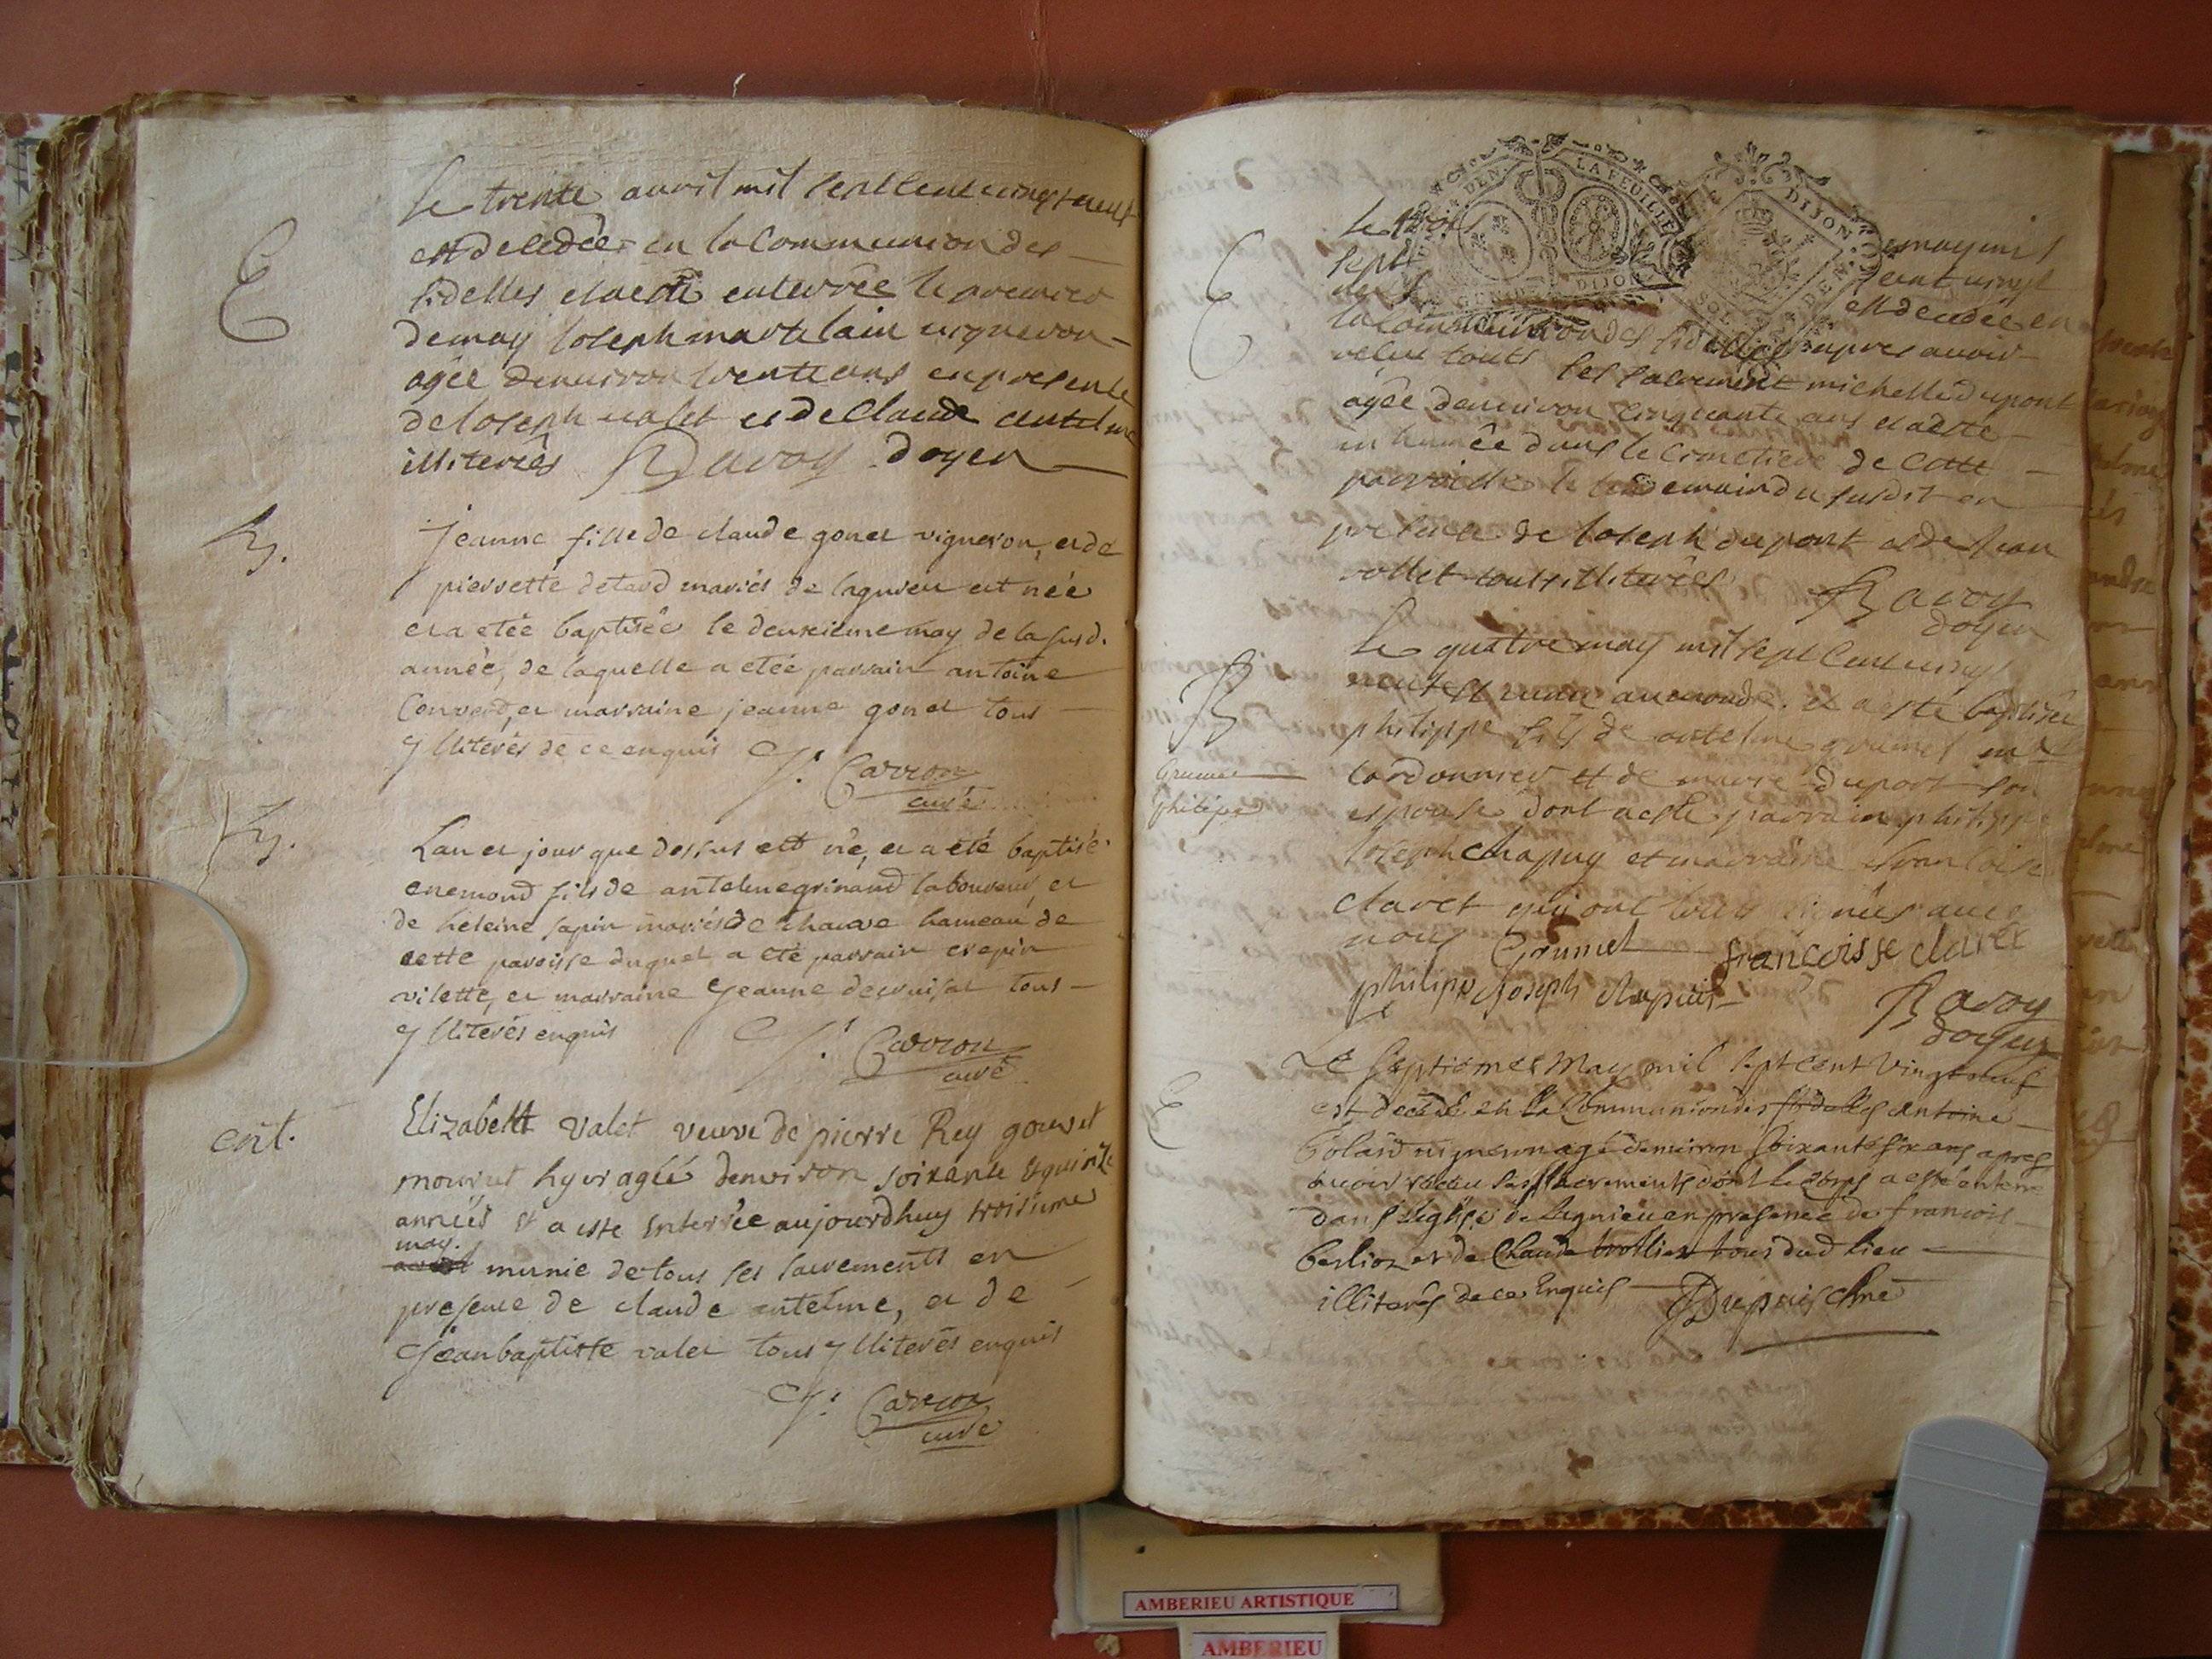 E
Le trente avril mil sept cent vingt neuf
est decedée en la Communion des
fidelles et a esté enterrée le premier
de may Joseph martelain vigneron
agée denviron trente ans en presence
de Joseph valet et de Claude antelme
illiterés Ravoy doyen
B.
Jeanne fille de claude gonet vigneron, et de
pierrette detard mariés de lagnieu est née
et a etée baptisée le deuxieme may de la susd.
année, de laquelle a etée parrain antoine
Convert, et marraine jeanne gonet tous
ylliterés de ce enquis J. Carron
curé
B.
Lan et jour que dessus est né, et a eté baptisé
enemond fils de antelme grinand laboureur, et
de heleine sapin mariés de chave hameau de
cette paroisse duquel a eté parrain crepin
vilette, et marraine Jeanne decruisat tous
ylliterés enquis J. Carron
curé
ent.
Elizabeth valet veuve de pierre Rey gouvet
mourut hyer agée denviron soixante et quinze
années et a esté enterrée aujourdhuy troisieme
may
munie de tous les sacrements en
presence de claude antelme, et de
Jean baptiste valet tous ylliterés enquis
J. Carron
curé
DEN. LA FEUILLE
DIJON
DIJON
SOL
DEN
E
Le trois de may mil
sept cent vingt
est decedée en
la Communion des fidelles apres avoir
reçu touts les sacrement michelle dupont
agée denviron cinquante ans et a esté
inhumée dans le cimetiere de cette
parroisse le lendemain du susdit en
presence de Joseph dupont et de Jean
rollet touts illiterés Ravoy
doyen
B
Grumet
philipe
Le quatre may mil sept cent vingt
neuf est venu au monde et a esté baptisée
philippe fils de antelme grumet me
cordonnier et de marie duport son
espouse dont a esté parrain philippe
Joseph chapuy et marraine francoise
claret qui ont tous signés avec
nous Grumet françoisse claret
philippe Joseph chapuis
Ravoy
doyen
E
Le septieme May mil sept cent vingt neuf
est decedé en la Communion des fidelles Antoine
vigneron agé denviron soixante six ans apres
avoir receu les sacrements dont le corps a esté enterré
dans l'eglise de Lagnieu en presence de francois
berlion et de Claude trollier tous dud lieu
illiterés de ce Enquis Dupuis chne
AMBERIEU ARTISTIQUE
AMBERIEU